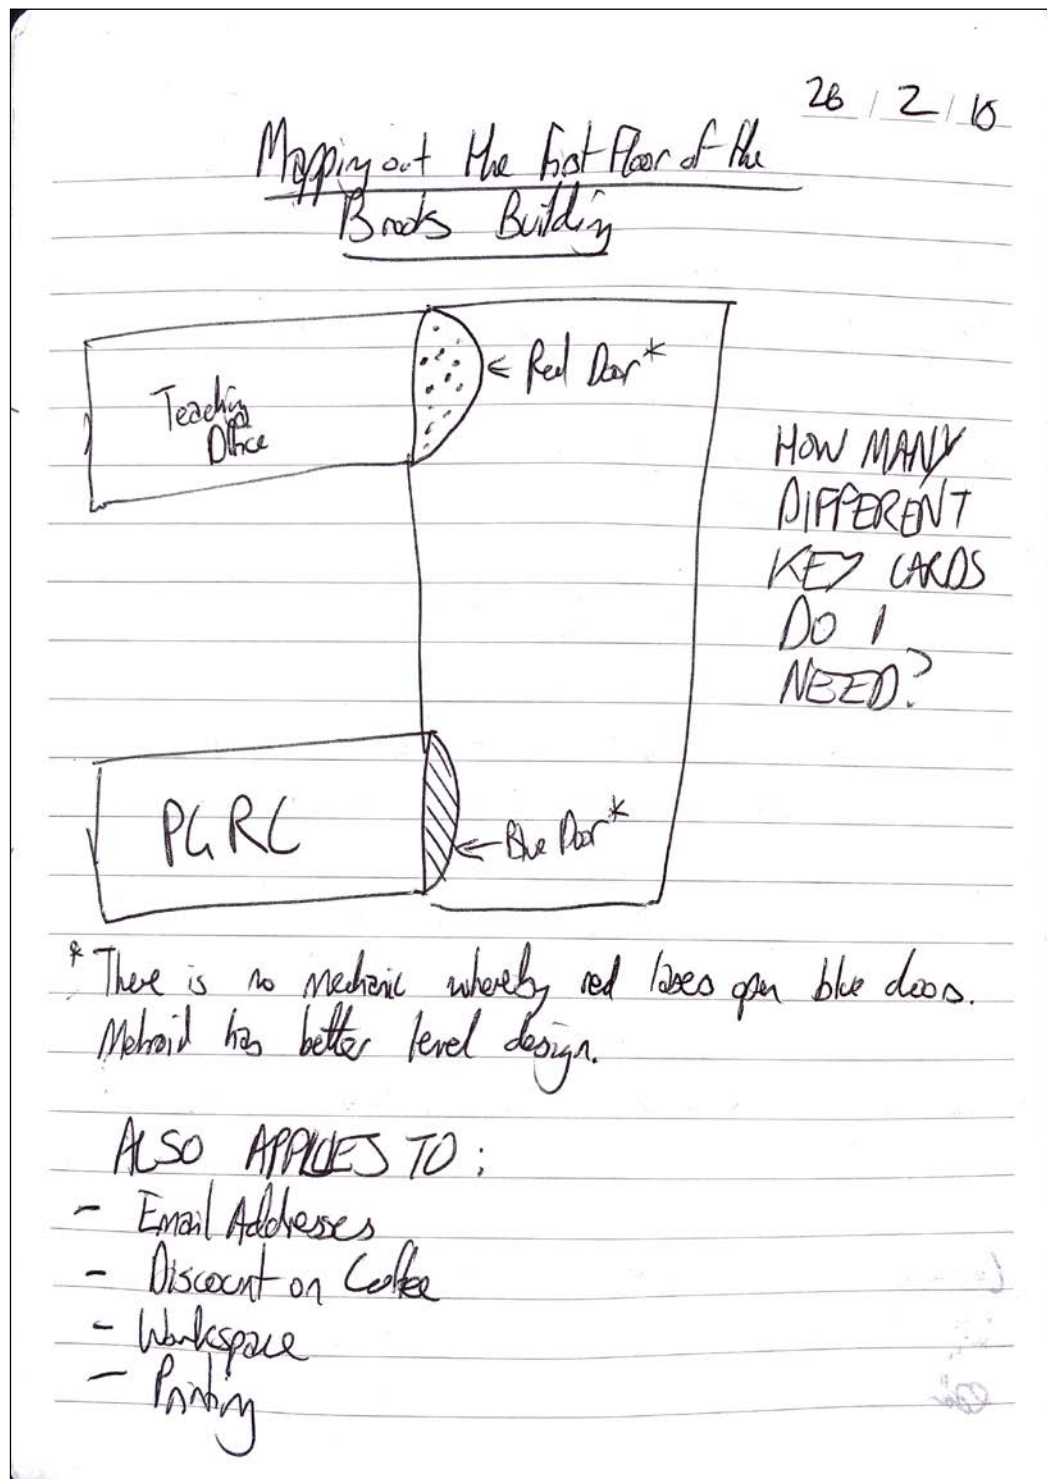 26 / 2 / 15
Mapping out the first floor of the
Brooks Building
Teaching
Office
← Red Door*
HOW MANY
DIFFERENT
KEY CARDS
DO I
NEED?
PGRC
← Blue Door*
* There is no mechanic whereby red lasers open blue doors.
Metroid has better level design.
ALSO APPLIES TO:
- Email Addresses
- Discount on Coffee
- Workspace
- Printing